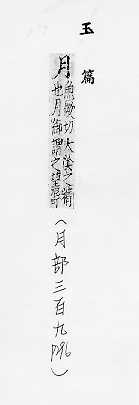 玉篇
月魚厥切大陰之精
也月御謂之望舒
(月部三百九 P96)